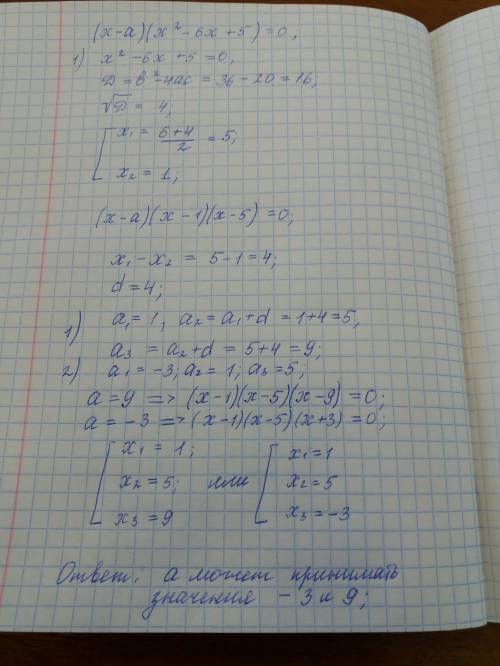 (x-a)(x² - 6x + 5) = 0,
1) x² - 6x + 5 = 0,
D = b² - 4ac = 36 - 20 = 16;
√D = 4;
[ x₁ = (6+4)/2 = 5;
x₂ = 1;
(x-a)(x-1)(x-5) = 0;
x₁ - x₂ = 5 - 1 = 4;
d = 4;
1) a₁ = 1, a₂ = a₁ + d = 1 + 4 = 5,
a₃ = a₂ + d = 5 + 4 = 9;
2) a₁ = -3; a₂ = 1; a₃ = 5,
a = 9 => (x-1)(x-5)(x-9) = 0;
a = -3 => (x-1)(x-5)(x+3) = 0;
[ x₁ = 1; [ x₁ = 1
x₂ = 5; или x₂ = 5
x₃ = 9 x₃ = -3
Ответ: а может принимать
значения -3 и 9;